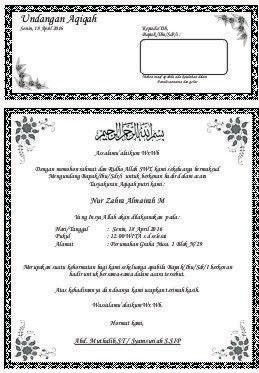 Undangan Aqiqah
Senin, 18 April 2016
Kepada Yth,
Bapak/Ibu/Sdr/i :
Mohon maaf apabila ada kesalahan dalam
Penulisan nama dan gelar
بسم الله الرحمن الرحيم
Assalamu'alaikum Wr.Wb
Dengan memohon rahmat dan Ridho Allah SWT, kami sekeluarga bermaksud
Mengundang Bapak/Ibu/Sdr/i untuk berkenan hadir dalam acara
Tasyakuran Aqiqah putri kami :
Nur Zahra Almairah M
Yang Insya Allah akan dilaksanakan pada :
Hari/Tanggal : Senin, 18 April 2016
Pukul : 12.00 WITA s.d selesai
Alamat : Perumahan Graha Musa, 1 Blok N/29
Merupakan suatu kehormatan bagi kami sekeluarga apabila Bapak/Ibu/Sdr/I berkenan
hadir untuk bersama-sama dalam acara tersebut.
Atas kehadirannya di rumah kami ucapkan terimah kasih.
Wassalamu'alaikum Wr. Wb.
Hormat kami,
Abd. Muthalib,ST / Syamsuriah,S.SIP